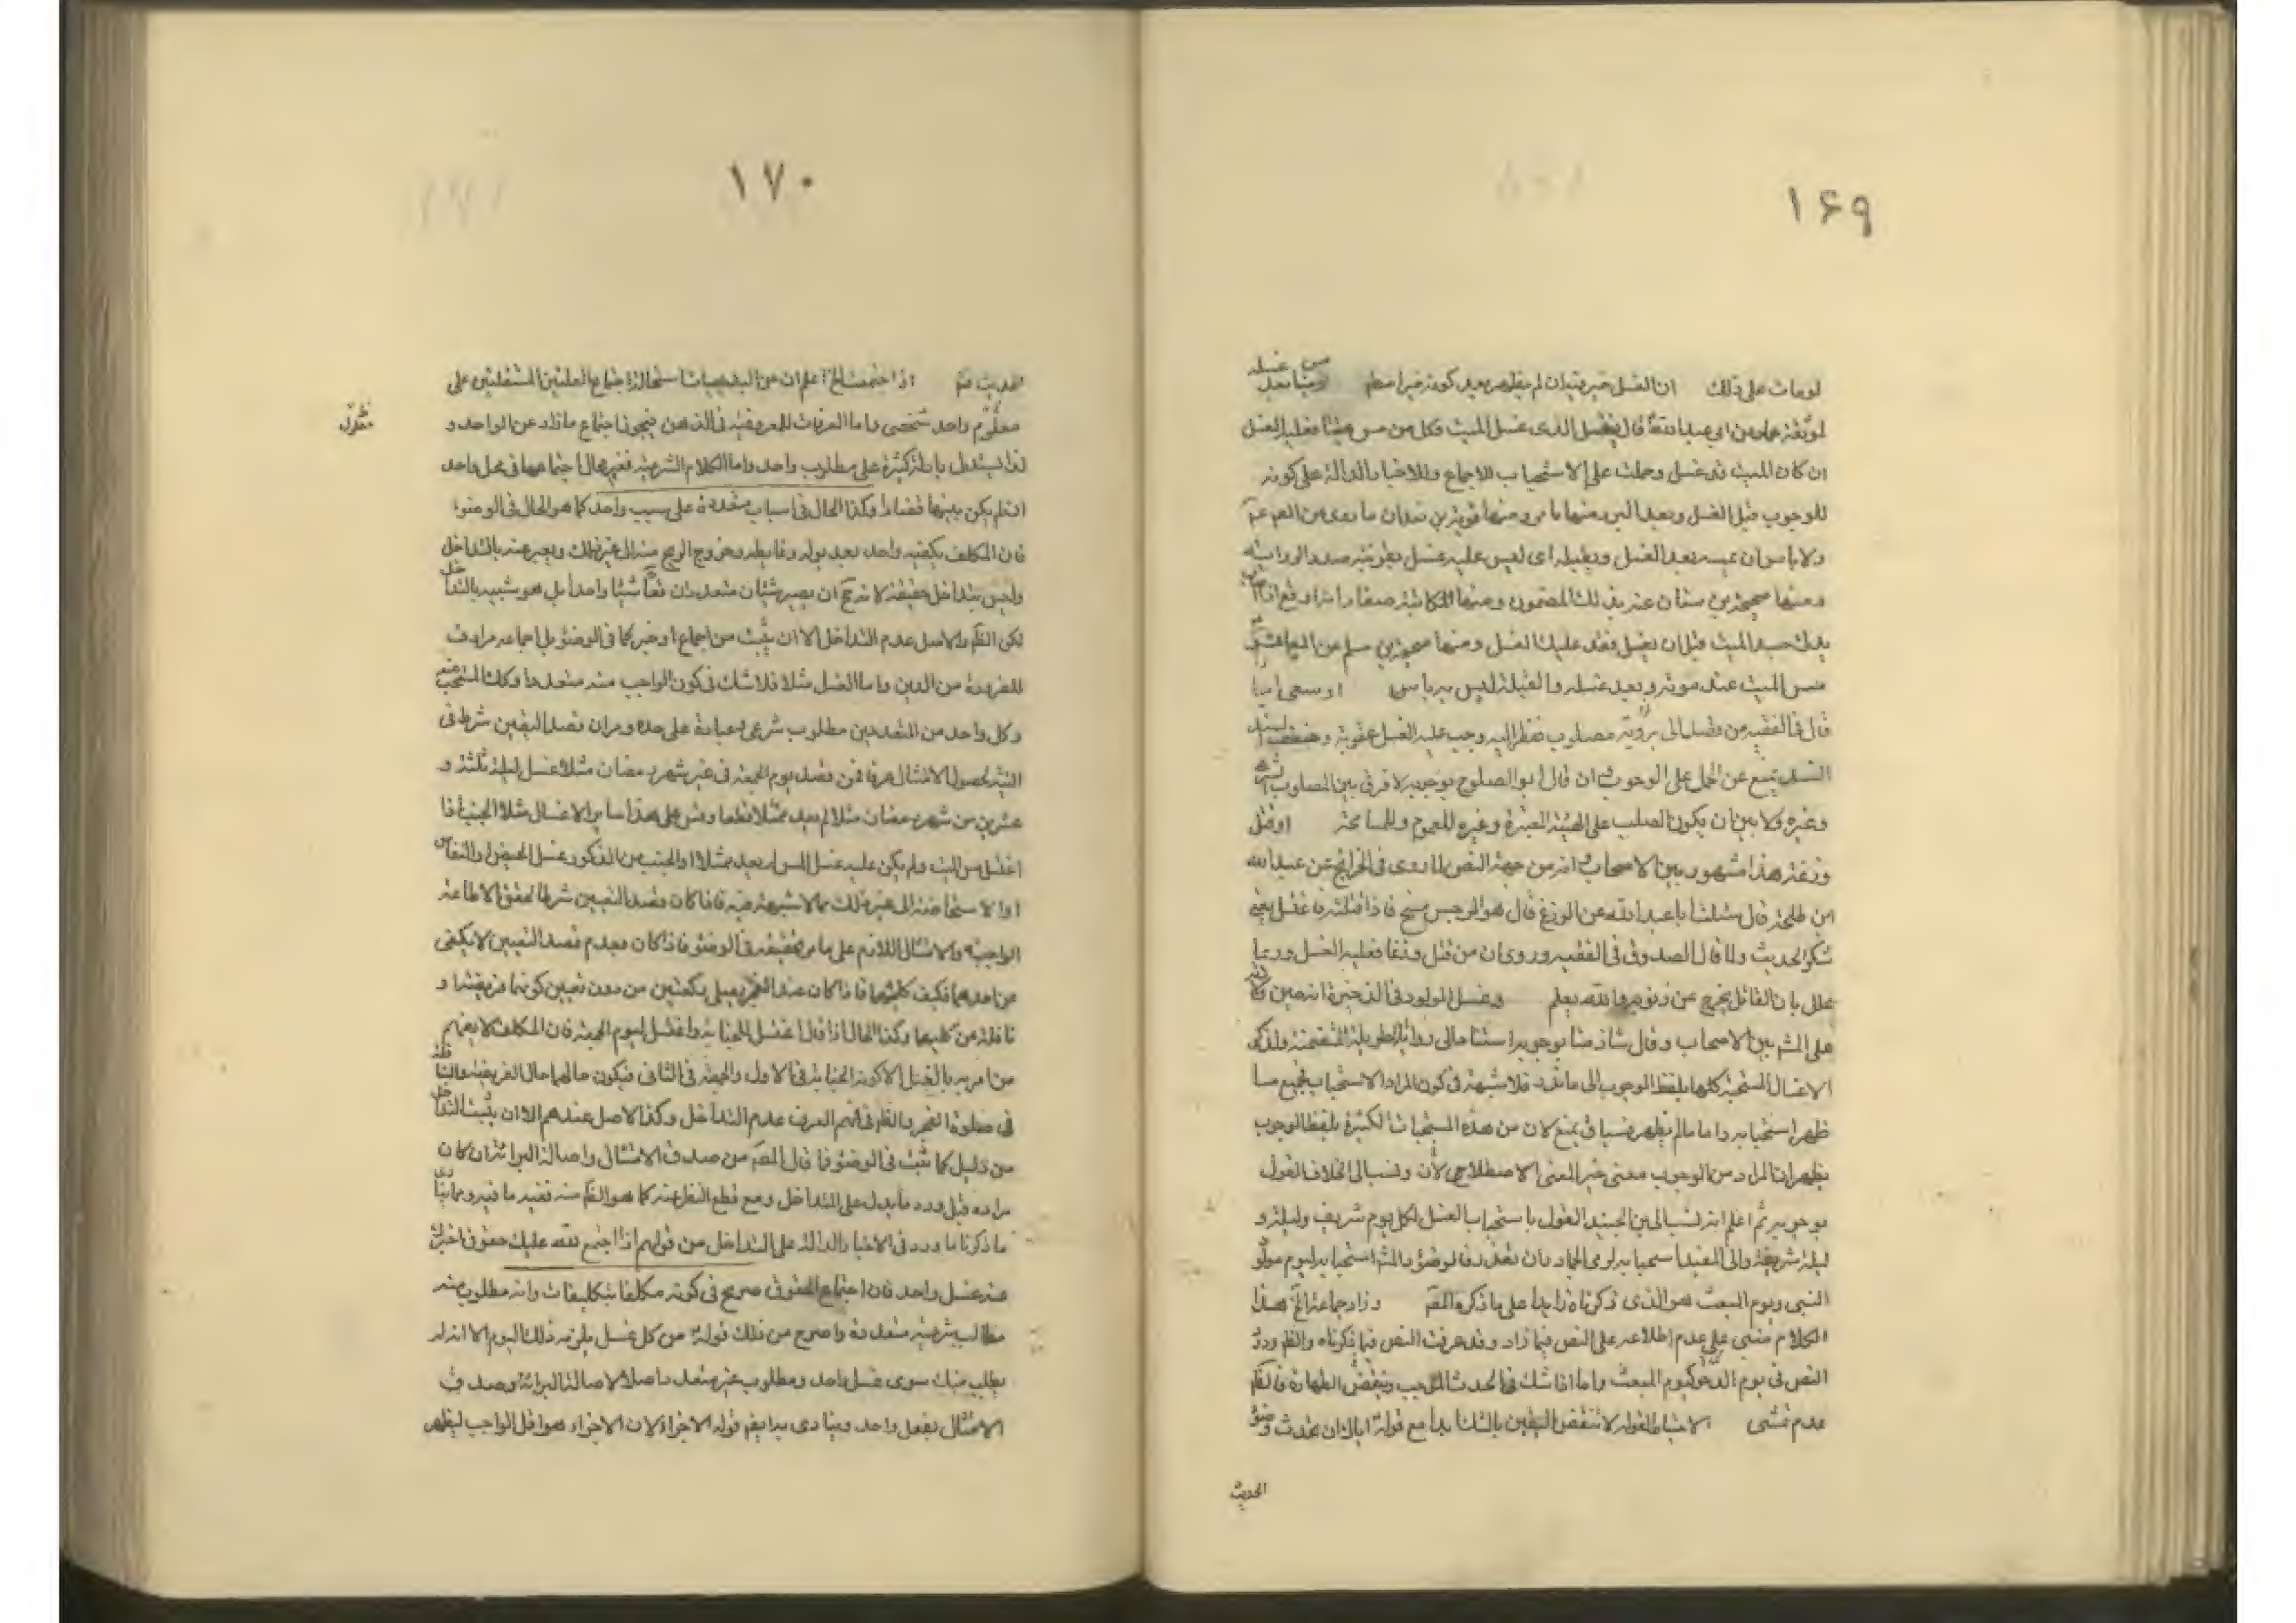 ۱۶۹
لو مات على ذلك ان الغسل خير فتدان لم يظهر بعد كونه خيرا مطم ومنها بعد من غسله
عن ابى عبد الله قال يغتسل الذى غسل الميت وكل من مس ميتا فعليه الغسل
ان كان الميت قد غسل وحملت على الاستحباب للاجماع وللاخبار الدالة على كونه
للوجوب قبل الغسل وبعد البرد منها ما مر ومنها
ولا باس ان يمسه بعد الغسل ويقبله اى ليس عليه غسل بقرينة صدر الرواية
ومنها صحيحة بن سنان عنه بذلك المضمون ومنها المكاتبة
يدك جسد الميت قبل ان يغسل فقد عليك الغسل ومنها صحيحة بن مسلم عن
مس الميت عند موته وبعد غسله والقبلة ليس به باس او سعى الى
قال فى الفقيه من قصد الى رؤية مصلوب فنظر اليه وجب عليه الغسل عقوبة وضعف
السند يمنع عن الحمل على الوجوب ان قال ابو الصلاح بوجوبه لا فرق بين المصلوب
وغيره ولا بين ان يكون الصلب على الهيئة المعتبرة وغيره للعموم وللمسامحة او قتل
وزغة هذا مشهور بين الاصحاب انه من جهة النص لما روى فى الخرائج عن عبد الله
ابن طلحة قال سئلت ابا عبد الله عن الوزغ قال هو الرجس مسخ فاذا قتلته فاغتسل يعنى
شكر الحديث ولما قال الصدوق فى الفقيه وروى ان من قتل وزغا فعليه الغسل وربما
علل بان القاتل يخرج عن ذنوبه والله يعلم وغسل المولود فى الذخيرة انه حين
على المشهور بين الاصحاب وقال شاذ منا بوجوبه استنادا الى رواية الطويلة المتضمنة
الاغسال المستحبة كلها بلفظ الوجوب الى ما ندر فلا شبهة فى كون المراد الاستحباب فجميع ما
ظهر استحبابه واما ما لم يظهر فسياق يمنع لان من هذه المستحبات الكثيرة بلفظ الوجوب
يظهر ان المراد من الوجوب معنى غير المعنى الاصطلاحى الان ونسب الى الخلاف القول
بوجوبه ثم اعلم انه نسب الى بن الجنيد القول باستحباب الغسل لكل يوم شريف وليلة و
ليلة شريفة والى المفيد استحبابه لرمى الجمار وان تعذر فالوضوء والمشهور استحبابه ليوم مولد
النبى ويوم المبعث هو الذى ذكرناه زايدا على ما ذكره المصم وزاد جماعة الخ هذا
الكلام مبنى على عدم اطلاعه على النص فيما زاد وقد عرفت النص فيما ذكرناه والظم ورود
النص فى يوم الدحو كيوم المبعث واما اذا شك فى الحدث الموجب ونقض الطهارة فالظم
عدم تمشى الاحتياط لقوله لا تنقض اليقين بالشك ابدا مع قوله اياك ان تحدث وضوء
الحديث
۱۷۰
الحديث فتم اذا اجتمعت الخ اعلم ان من البديهيات استحالة اجتماع العلتين المستقلتين على
معلوم واحد شخصى واما المعرفات للمعروفية فى الذهن فيجوز اجتماع ما زاد عن الواحد و
معلول
لذا يستدل بادلة كثيرة على مطلوب واحد واما الكلام الشرعية فغير محال اجتماعها فى محل واحد
اذ لم يكن بينها تضاد وكذا الحال فى اسباب متعددة على سبب واحد كما هو الحال فى الوضوء
فان المكلف يكفيه واحد بعد بوله وغايطه وخروج الريح منه الى غير ذلك ويعبر عنه بالتداخل
وليس بتداخل حقيقة لانه يمتنع ان يصير شيئان متعددان شيئا واحدا بل هو شبيه بالتداخل
لكن الظم والاصل عدم التداخل الا ان يثبت من اجماع او خبر كما فى الوضوء بل اجماعه مرادف
للضرورة من الدين واما الغسل مثلا فلا شك فى كون الواجب منه متعددا وكذا المستحب منه
وكل واحد من المتعددين مطلوب شرعى وعبادة على حده ومر ان قصد التعيين شرط فى
النية لحصول الامتثال عرفا فمن قصد يوم الجمعة فى غير شهر رمضان مثلا غسل ليلة ثلثة و
عشرين من شهر رمضان مثلا لم يعد ممتثلا قطعا وقس على هذا ساير الاغسال مثلا الجنب اذا
اغتسل مس الميت ولم يكن عليه غسل المس لم يعد ممتثلا والجنب من الذكور غسل الحيض والنفاس
او الاستحاضة الى غير ذلك مما لا شبهة فيه فاذا كان قصد التعيين شرطا لتحقق الاطاعة
الواجبة والامتثال اللازم على ما مر تحقيقه فى الوضوء فاذا كان بعدم قصد التعيين لا يكفى
عن احدهما فكيف كليهما فاذا كان عند الفجر يصلى ركعتين من دون تعيين كونها فريضة او
نافلة عن كليهما وكذا الحال اذا قال اغتسل للجنابة واغتسل ليوم الجمعة فان المكلف لا يفهم
من امريه بالغسل الا كونه للجنابة فى الاول والجمعة فى الثانى فيكون حالهما حال الفريضة والنافلة
فى صلوة الفجر والظم فى فهم العرف عدم التداخل وكذا الاصل عندهم الا ان يثبت التداخل
من دليل كما ثبت فى الوضوء فما قال المصم من صدق الامتثال واصالة البرائة ان كان
مراده قبل ورود ما يدل على التداخل ومع قطع النظر عنه كما هو الظم منه ففيه ما فيه
ما ذكرنا ما ورد فى الاخبار الدالة على التداخل من قولهم اذا اجتمع لله عليك حقوق اجزاك
عنه غسل واحد فان اجتماع الحقوق صريح فى كونه مكلفا بتكليفات وانه مطلوب منه
مطالب شرعية متعددة واصرح من ذلك قوله من كل غسل يلزمه ذلك اليوم لا انه لم
يطلب منك سوى غسل واحد ومطلوب غير متعدد اصلا لاصالة البرائة وصدق
الامتثال بفعل واحد وينادى بذا ايضم قوله الاجزاء لان الاجزاء هو اقل الواجب ليظهر